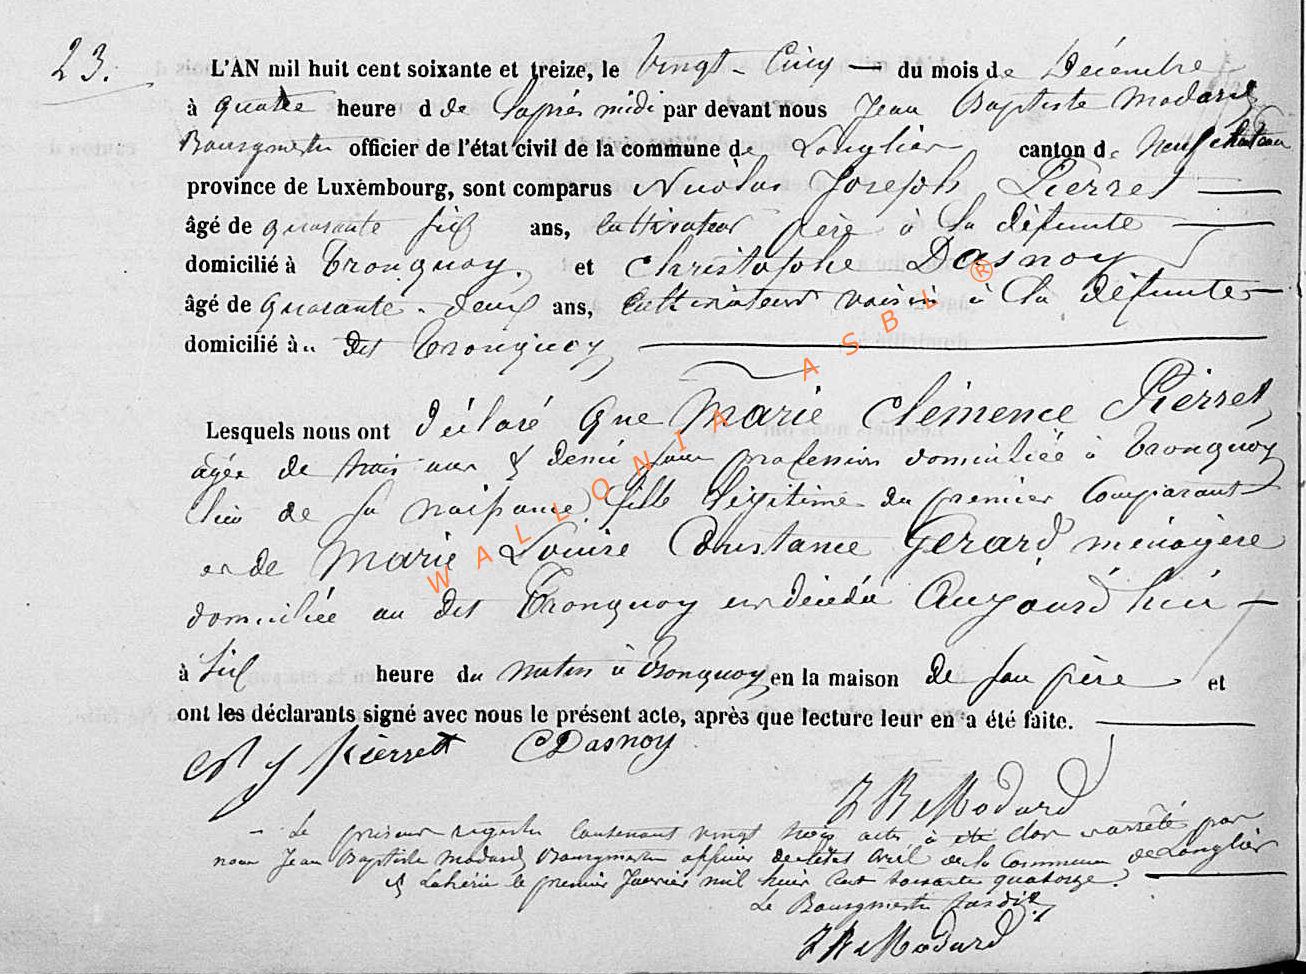 23.
L'AN mil huit cent soixante et treize, le Vingt-Cinq — du mois de Décembre
à quatre heure d de l'après midi par devant nous Jean Baptiste Modard
Bourgmestre officier de l'état civil de la commune de Longlier canton de Neufchateau
province de Luxèmbourg, sont comparus Nicolas Joseph Pierret
âgé de quarante six ans, Cultivateur père à la défunte
domicilié à Tronquoy, et Christophe Dasnoy
âgé de quarante-deux ans, Cultivateur voisin à la défunte
domicilié à.. dit Tronquoy
Lesquels nous ont déclaré que Marie Clémence Pierret
agée de trois ans & demi sans profession domiciliée à Tronquoy
lieu de sa naissance, fille légitime du premier Comparant
et de Marie Louise Constance Gérard ménagère
domiciliée au dit Tronquoy est décédée Aujourd'hui
à six heure du matin à Tronquoy en la maison de son père et
ont les déclarants signé avec nous le présent acte, après que lecture leur en a été faite.
N J Pierrett CDasnoy
J B Modard
Le présent registre contenant vingt trois actes à été clos et arrêté par
nous Jean Baptiste Modard Bourgmestre officier de l'état civil de la Commune de Longlier
& le premier Janvier mil huit cent soixante quatorze.
Le Bourgmestre susdit,
J B Modard
WALLONIA ASBL ®